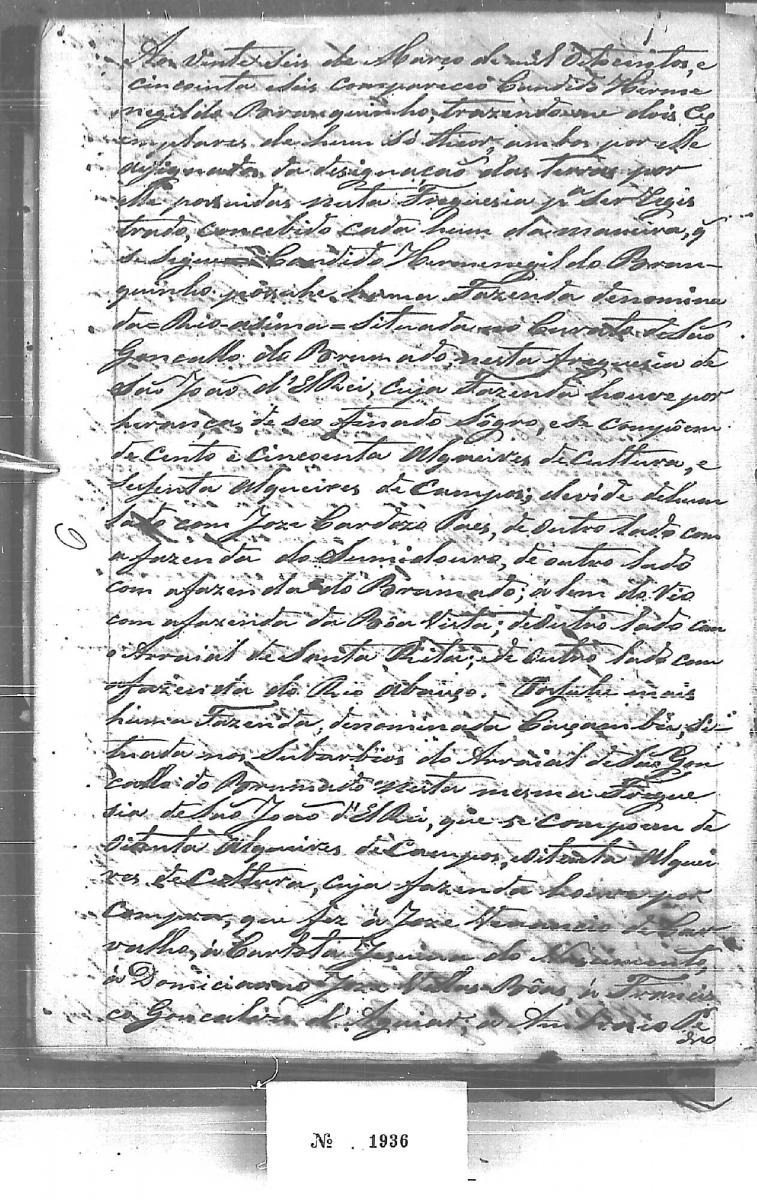 Aos vinte seis de Março de mil oitocentos, e
cincoenta e seis compareceo Candido Herme
negildo Branquinho, trazendo-me dois Ex
emplares de hum só theor, ambos por elle
assignados da designação das terras por
elle possuidas nesta Freguesia pª ser regis
trado, concebido cada hum da maneira, q̃
se segue = Candido Hermenegildo Bran-
quinho possuhe huma Fazenda denomina
da = Rio-acima = situada no Curato de São
Goncallo do Brumado, nesta freguesia de
São João d'El Rei, cuja Fazenda houve por
herança de seo finado Sôgro, e se compoem
de cento e cincoenta Alqueires de cultura, e
sessenta Alqueires de Campos; devide de hum
lado com Joze Cardozo Paes, de outro lado com
a fazenda do Sumidouro, de outro lado
com a fazenda do Brumado; á lem do Rio
com a fazenda da Bôa Vista; de outro lado com
o Arraial de Santa Rita; e de outro lado com
a fazenda do Rio abaixo. Possuhe mais
huma Fazenda, denominada Caçambú, si-
tuada nos Suburbios do Arraial de São Gon
callo do Brumado nesta mesma Fregue
sia de São João d'El Rei, que se compoem de
oitenta Alqueires de Campos, e Alquei
res de Cultura, cuja fazenda houve por
compra, que fez á Joze Venancio de Car
valho, á Carlota do Nascimento,
á Domiciano Joze Villas Bôas, á Francis
co Goncalves d'Aguiar, a Ambrozio Pe
dro
6
№ 1936